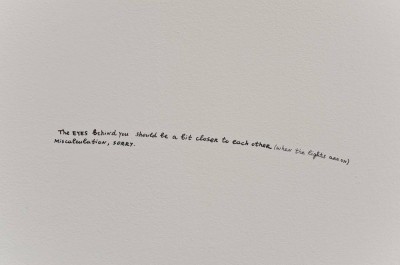 The EYES Behind you should be a bit closer to each other (when the lights are on)
Miscalculation, sorry.